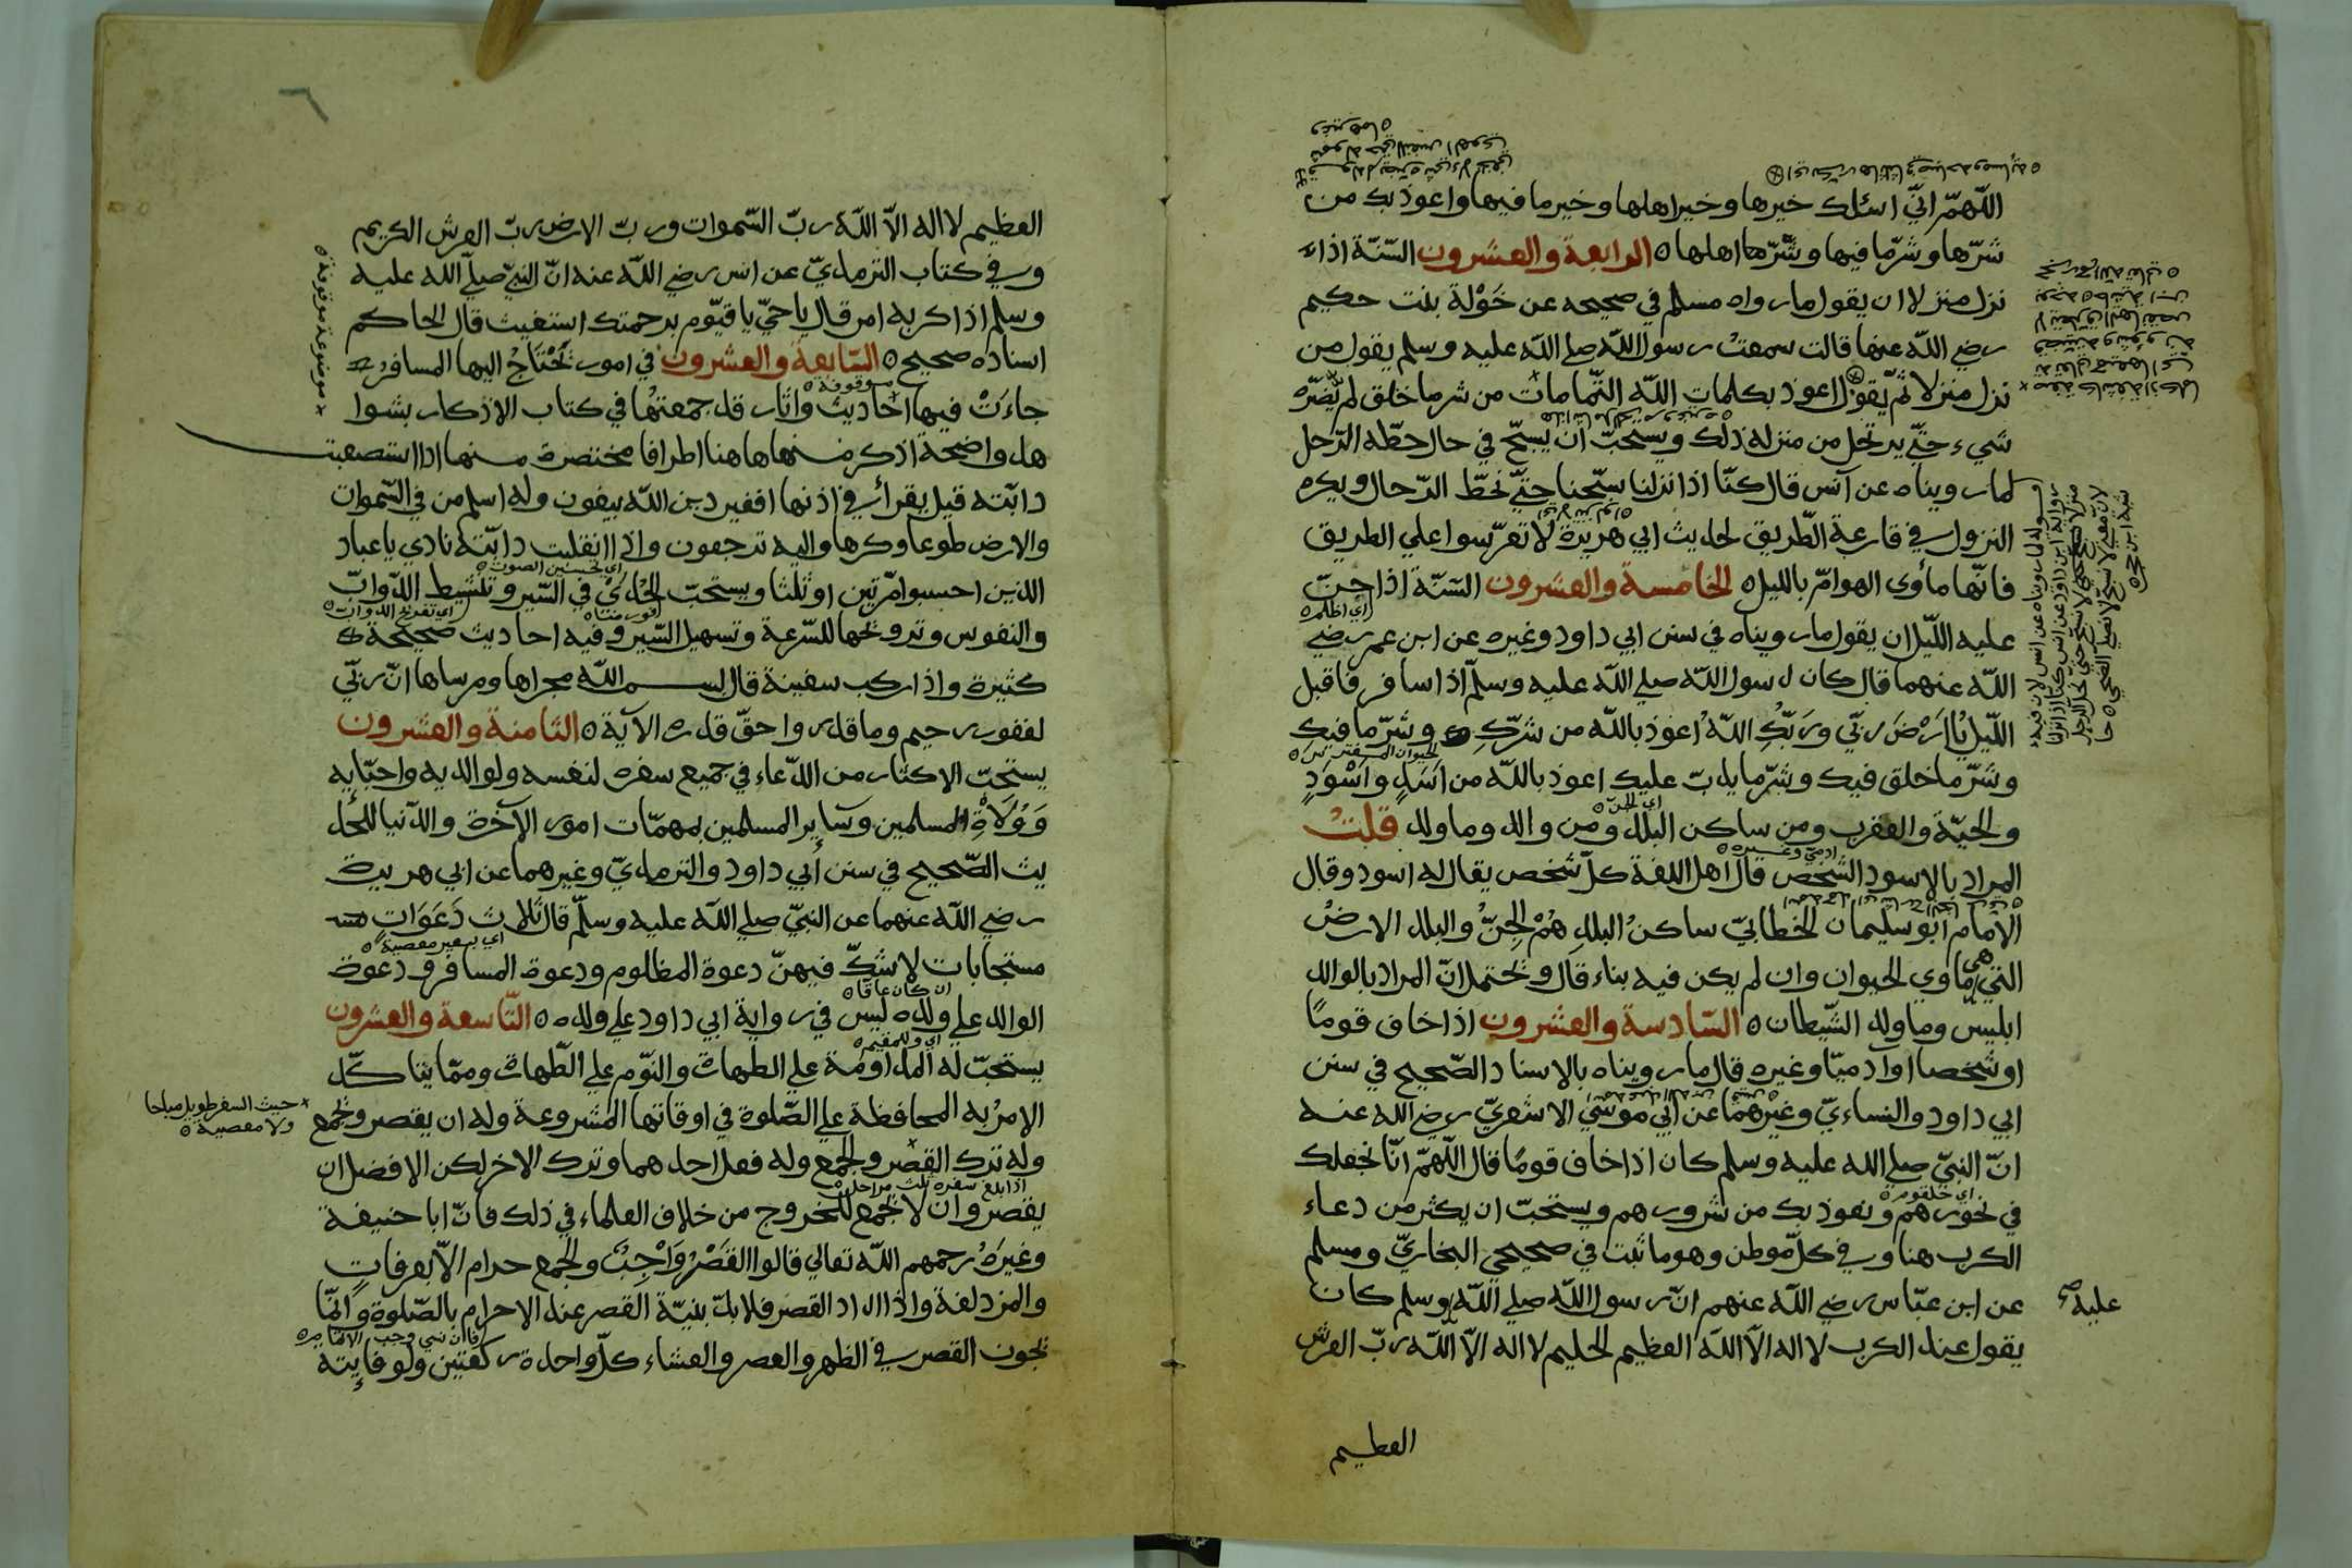 اللّهمّ انيّ اسئلك خيرها وخير اهلها وخير ما فيها واعوذ بك من
شرّها وشرّ ما فيها وشرّ اهلها ٥ الرابعة والعشرون السّنّة اذا
نزل منزلا ان يقول ما رواه مسلم في صحيحه عن خَوْلة بنت حكيم
رضي اللّه عنها قالت سمعتُ رسول اللّه صلي اللّه عليه وسلم يقول من
نزل منزلا ثمّ يقول اعوذ بكلمات اللّه التّامات من شر ما خلق لم يضرّه
شيء حتّي يرتحل من منزله ذلك ويستحبّ ان يسبّح في حال حطّه الرّحل
لما رويناه عن انس قال كنّا اذا نزلنا سبّحنا حتّي نحطّ الرّحال ويكره
النزول في قارعة الطّريق لحديث ابي هريرة لا تعرّسوا علي الطريق
فانّها مأوى الهوامّ بالليل ٥ الخامسة والعشرون السّنّة اذا جنّ
اي اظلم ٥
عليه اللّيل ان يقول ما رويناه في سنن ابي داود وغيره عن ابن عمر رضي
اللّه عنهما قال كان رسول اللّه صلي اللّه عليه وسلّم اذا سافر فاقبل
اللّيل يا ارْضَ ربّي وربّكِ اللّهُ اعوذ باللّه من شرّكِ وشرّ ما فيك
وشرّ ما خلق فيك وشرّ ما يدبّ عليك اعوذ باللّه من اَسَدٍ واَسْوَدٍ
اي الجنّ ٥
والحيّة والعقرب ومن ساكن البلد ومن والد وما ولد قلتُ
المراد بالاسود الشّخص قال اهل اللغة كلّ شخص يقال له اسود وقال
الامام ابو سليمان الخطابيّ ساكنُ البلدِ هُمْ الجِنُّ والبلد الارضُ
التي هي مأوي الحيوان وان لم يكن فيه بناء قال ويحتمل انّ المراد بالوالد
ابليس وما ولد الشّيطان ٥ السّادسة والعشرون اذا خاف قومًا
او شخصا او آدميّا وغيره قال ما رويناه بالاسناد الصّحيح في سنن
ابي داود والنساءيّ وغيرهما عن ابي موسي الاشعريّ رضي اللّه عنه
انّ النبيّ صلي اللّه عليه وسلم كان اذا خاف قومًا قال اللّهمّ انّا نجعلك
في نحورهم ونعوذ بك من شرورهم ويستحبّ ان يكثر من دعاء
الكرب هنا وفي كلّ موطن وهو ما ثبت في صحيحي البخاريّ ومسلم
عن ابن عبّاس رضي اللّه عنهم انّ رسول اللّه صلي اللّه وسلم كان
عليه صح
يقول عند الكرب لا اله الّا اللّه العظيم الحليم لا اله الّا اللّه ربّ العرش
العظيم
٦
العظيم لا اله الّا اللّه ربّ السّموات وربّ الارض ربّ العرش الكريم
وفي كتاب الترمذيّ عن انس رضي اللّه عنه انّ النبيّ صلّي اللّه عليه
وسلم اذا كربه امر قال يا حيّ يا قيّوم برحمتك استغيث قال الحاكم
اسناده صحيح ٥ السّابعة والعشرون في امور يَحْتَاجُ اليها المسافر
جاءَتْ فيها احاديث واثار قد جمعتها في كتاب الاذكار بشوا
هد واضحة اذكر منها هاهنا اطرافا مختصرة منها اذا استصعبت
دابّته قيل يقرأ في اذنها افغير دين اللّه يبغون وله اسلم من في السّموات
والارض طوعا وكرها واليه ترجعون واذا انفلتت دابّته نادي يا عباد
اي تحسين الصوت ٥
الذين احبسوا مرّتين او ثلثا ويستحبّ الحُدَيْ في السّير وتنشيط الدّوابّ
والنفوس وترويحها للسّرعة وتسهيل السّير وفيه احاديث صحيحة
كثيرة واذا ركب سفينة قال بسم اللّه مجراها ومرساها انّ ربّي
لغفور رحيم وما قدروا حقّ قدره الآية ٥ الثّامنة والعشرون
يستحبّ الاكثار من الدّعاء في جميع سفره لنفسه ولوالديه واحبّايه
وَوُلَاةِ المسلمين وساير المسلمين بمهمّات امور الآخرة والدّنيا للحد
يث الصّحيح في سنن أبي داود والترمذيّ وغيرهما عن ابي هريرة
رضي اللّه عنهما عن النبيّ صلي اللّه عليه وسلّم قال ثلاث دَعَوَاتٍ
اي بغير معصية ٥
مستجابات لا شكّ فيهنّ دعوة المظلوم ودعوة المسافر ودعوة
ان كان عاقا ٥
الوالد علي ولده ليس في رواية ابي داود علي ولده ٥ التّاسعة والعشرون
يستحبّ له المداومة علي الطهارة والنّوم علي الطّهارة وممّا يتاكّد
الامرُ به المحافظة علي الصّلوة في اوقاتها المشروعة وله ان يقصر ويجمع
× حيث السفر طويل مباحا
ولا معصية ٥
وله ترك القصر والجمع وله فعل احدهما وترك الاخر لكن الافضل ان
اذا بلغ سفره ثلث مراحل ٥
يقصر وان لا يجمع للخروج من خلاف العلماء في ذلك فانّ ابا حنيفة
وغيرَهُ رحمهم اللّه تعالي قالوا القَصْرُ وَاجِبٌ والجمع حرام الّا بعرفات
والمزدلفة واذا اراد القصر فلابدّ بنيّة القصر عند الاحرام بالصّلوة وانّما
فان نسي وجب الاتمام ٥
يجوز القصر في الظهر والعصر والعشاء كلّ واحدة ركعتين ولو فايتة